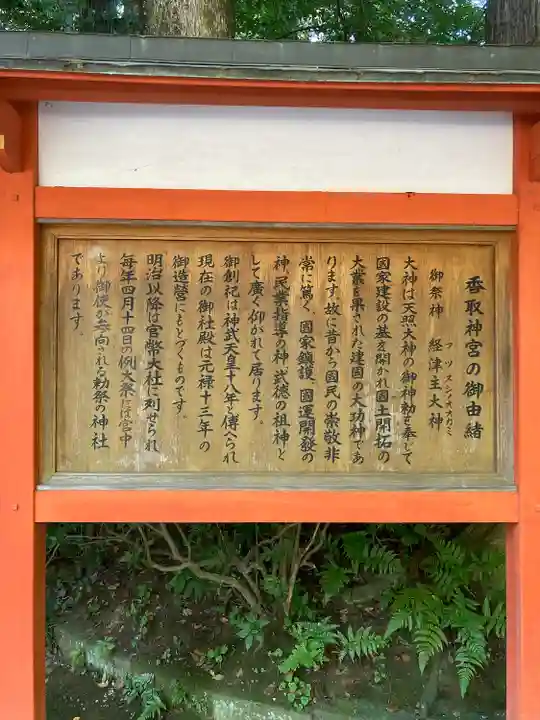 香取神宮の御由緒
御祭神 経津主大神
フツヌシノオオカミ
大神は天照大神の御神勅を奉じて
國家建設の基を開かれ国土開拓の
大業を果された建国の大功神であ
ります。故に昔から国民の崇敬非
常に篤く、國家鎮護、國運開發の
神、民業指導の神、武徳の祖神と
して廣く仰がれて居ります。
御創祀は神武天皇十八年と傳へられ
現在の御社殿は元禄十三年の
御造營にもとづくものです。
明治以降は官幣大社に列せられ
毎年四月十四日の例大祭には宮中
より御使が参向される勅祭の神社
であります。